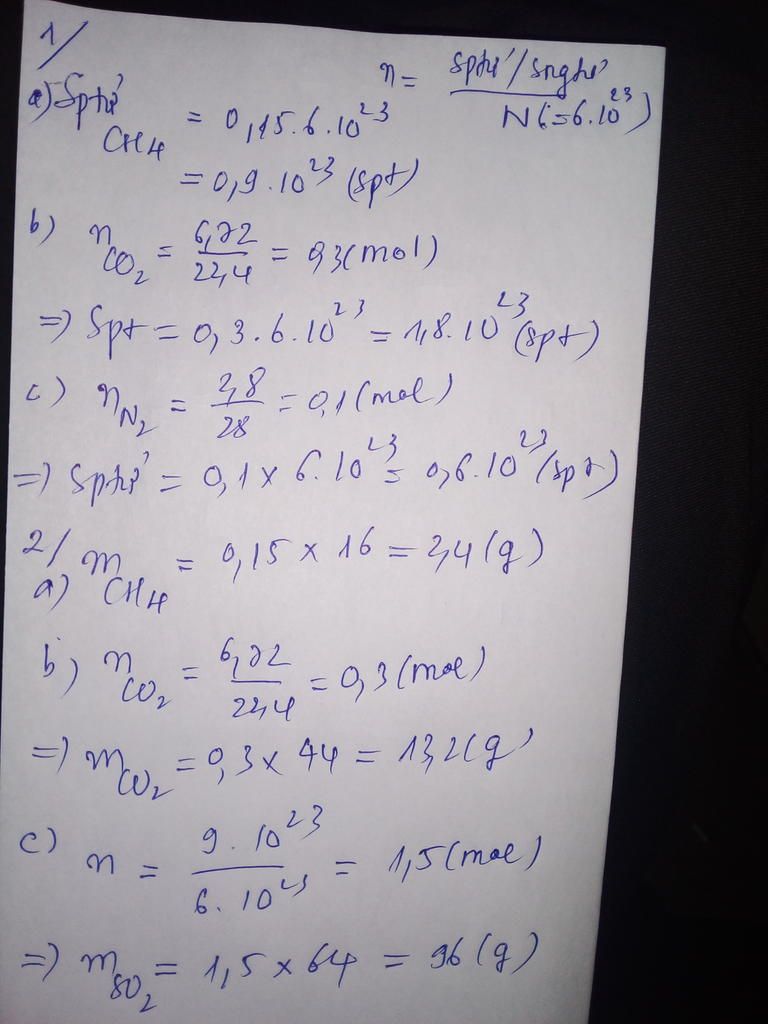 1/
n = Sptử/Sngtử / N (=6.10²³)
a) Sptử CH₄ = 0,15.6.10²³
= 0,9.10²³ (spt)
b) n CO₂ = 6,72/22,4 = 0,3 (mol)
=> Spt = 0,3.6.10²³ = 1,8.10²³ (spt)
c) n N₂ = 2,8/28 = 0,1 (mol)
=> Sptử = 0,1 x 6.10²³ = 0,6.10²³ (spt)
2/
a) m CH₄ = 0,15 x 16 = 2,4 (g)
b) n CO₂ = 6,72/22,4 = 0,3 (mol)
=> m CO₂ = 0,3 x 44 = 13,2 (g)
c) n = 9.10²³/6.10²³ = 1,5 (mol)
=> m SO₂ = 1,5 x 64 = 96 (g)